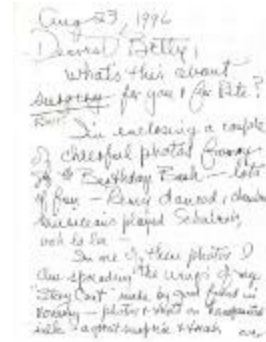 Aug 23, 1996
Dearest Betty,
What's this about
surgery for you & for Pete?
I'm enclosing a couple
of cheerful photos from
Birthday Bash — lots
of fun — danced, 
musicians played Schubert,
ooh la la —
In one of these photos I
am spreading the wings of my
"Story Coat" made by good friend in
— photos & on
silk — a great surprise &
over